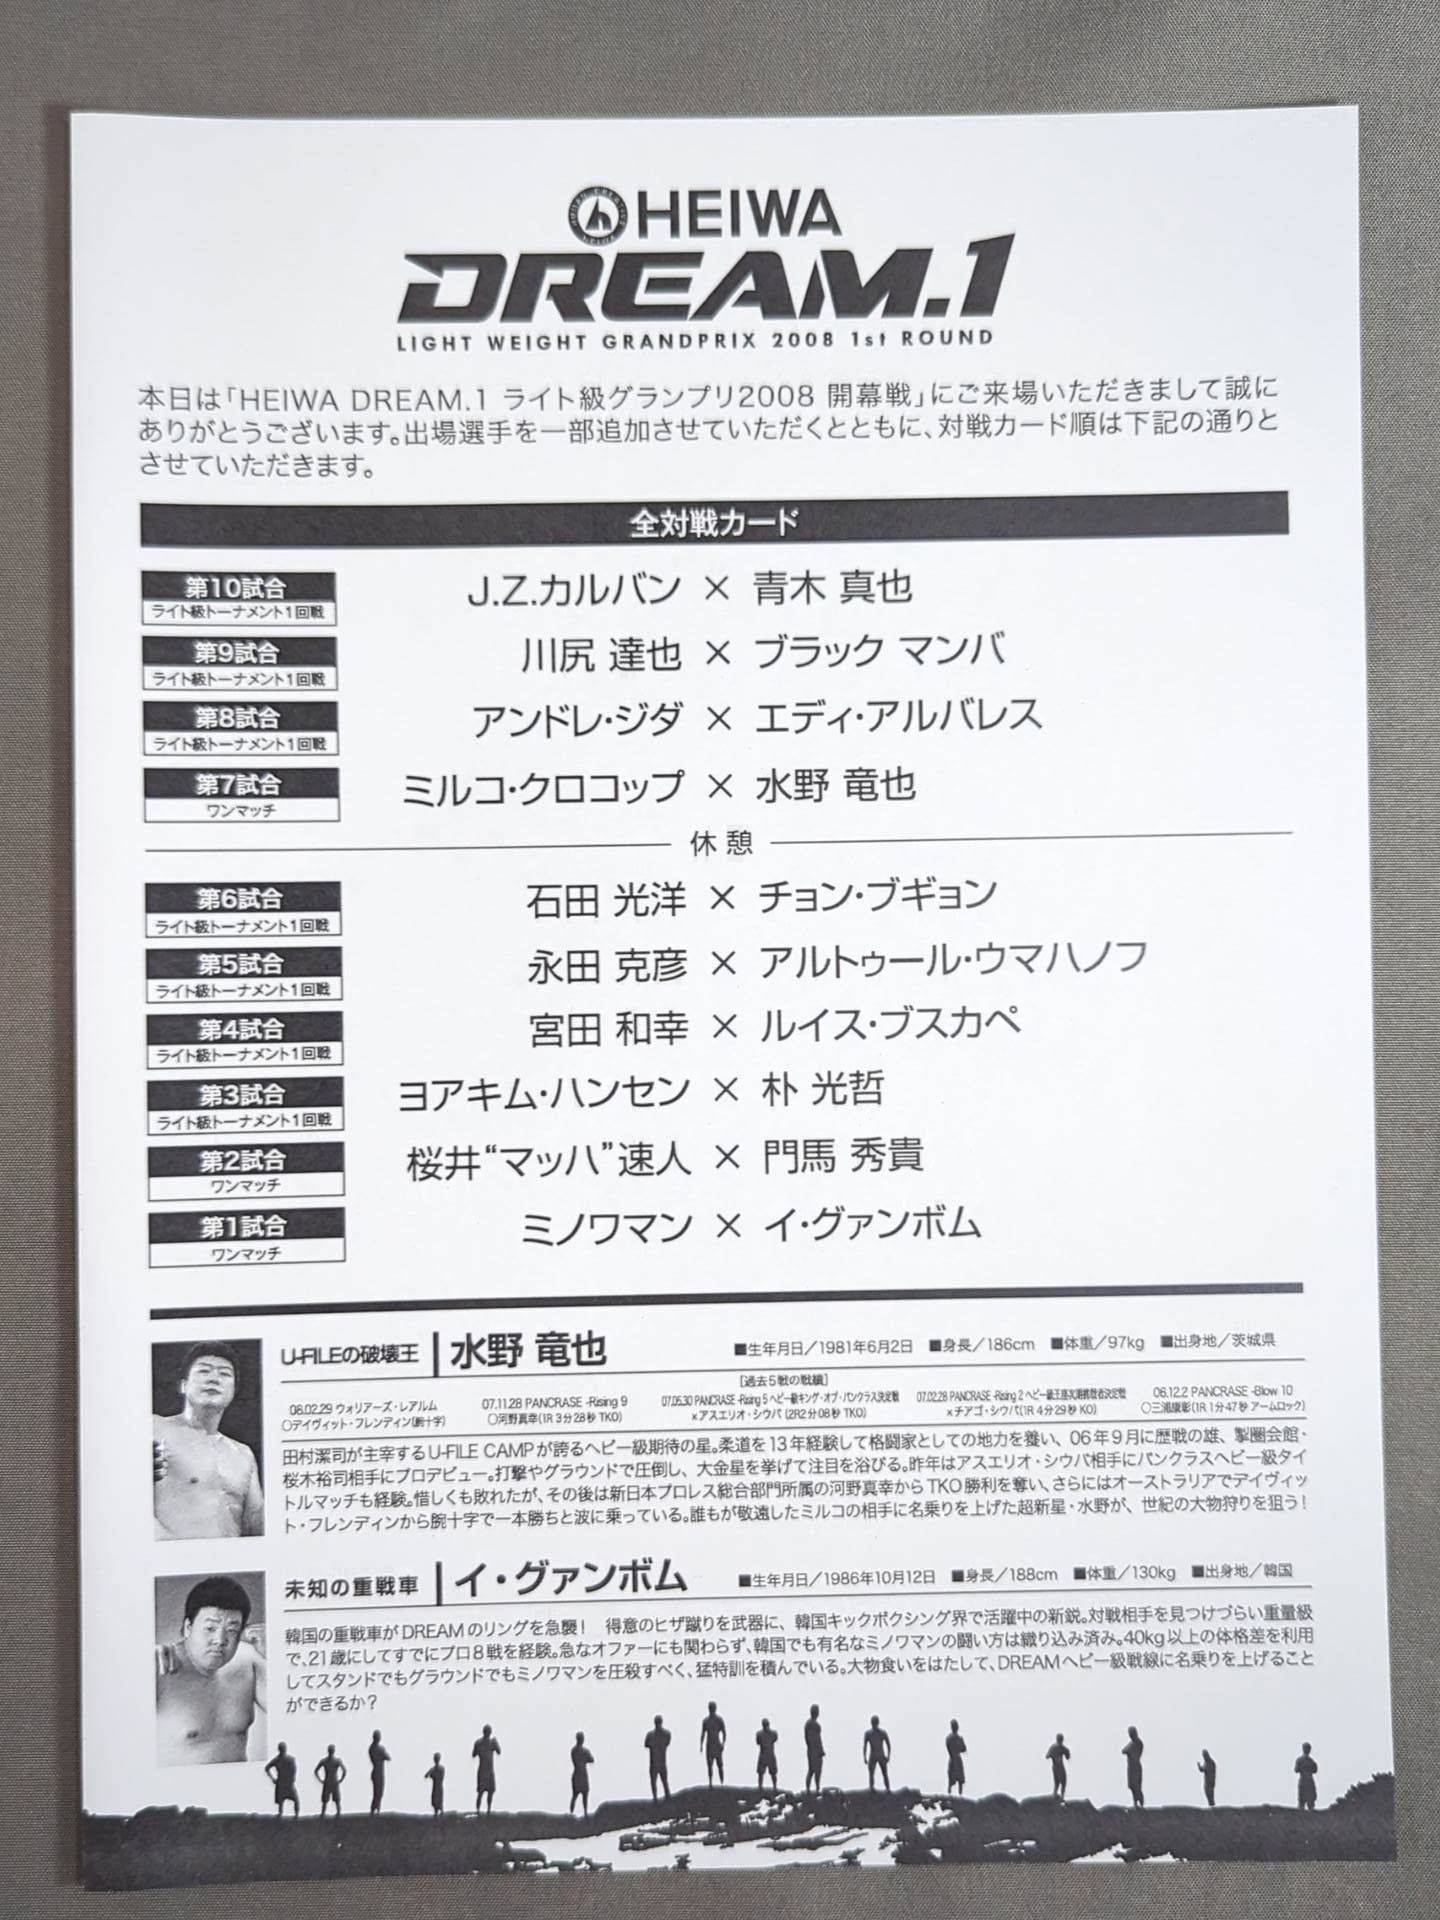 HEIWA
DREAM.1
LIGHT WEIGHT GRANDPRIX 2008 1st ROUND
本日は「HEIWA DREAM.1 ライト級グランプリ2008 開幕戦」にご来場いただきまして誠に
ありがとうございます。出場選手を一部追加させていただくとともに、対戦カード順は下記の通りと
させていただきます。
全対戦カード
第10試合
ライト級トーナメント1回戦
J.Z.カルバン × 青木 真也
第9試合
ライト級トーナメント1回戦
川尻 達也 × ブラック マンバ
第8試合
ライト級トーナメント1回戦
アンドレ・ジダ × エディ・アルバレス
第7試合
ワンマッチ
ミルコ・クロコップ × 水野 竜也
休憩
第6試合
ライト級トーナメント1回戦
石田 光洋 × チョン・ブギョン
第5試合
ライト級トーナメント1回戦
永田 克彦 × アルトゥール・ウマハノフ
第4試合
ライト級トーナメント1回戦
宮田 和幸 × ルイス・ブスカペ
第3試合
ライト級トーナメント1回戦
ヨアキム・ハンセン × 朴 光哲
第2試合
ワンマッチ
桜井“マッハ”速人 × 門馬 秀貴
第1試合
ワンマッチ
ミノワマン × イ・グァンボム
U-FILEの破壊王 水野 竜也 ■生年月日／1981年6月2日 ■身長／186cm ■体重／97kg ■出身地／茨城県
[過去5戦の戦績]
08.02.29 ウォリアーズ・レアルム 07.11.28 PANCRASE -Rising 9 07.05.30 PANCRASE -Rising 5 ヘビー級キング・オブ・パンクラス決定戦 07.02.28 PANCRASE -Rising 2 ヘビー級王座次期挑戦者決定戦 06.12.2 PANCRASE -Blow 10
○デイヴィット・フレンディン(腕十字) ○河野真幸(1R 3分28秒 TKO) ×アスエリオ・シウバ (2R2分08秒 TKO) ×チアゴ・シウバ(1R 4分29秒 KO) ○三浦康彰(1R 1分47秒 アームロック)
田村潔司が主宰するU-FILE CAMPが誇るヘビー級期待の星。柔道を13年経験して格闘家としての地力を養い、06年9月に歴戦の雄、掣圏会館・
桜木裕司相手にプロデビュー。打撃やグラウンドで圧倒し、大金星を挙げて注目を浴びる。昨年はアスエリオ・シウバ相手にパンクラスヘビー級タイ
トルマッチも経験。惜しくも敗れたが、その後は新日本プロレス総合部門所属の河野真幸からTKO勝利を奪い、さらにはオーストラリアでデイヴィッ
ト・フレンディンから腕十字で一本勝ちと波に乗っている。誰もが敬遠したミルコの相手に名乗りを上げた超新星・水野が、世紀の大物狩りを狙う！
未知の重戦車 イ・グァンボム ■生年月日／1986年10月12日 ■身長／188cm ■体重／130kg ■出身地／韓国
韓国の重戦車がDREAMのリングを急襲！ 得意のヒザ蹴りを武器に、韓国キックボクシング界で活躍中の新鋭。対戦相手を見つけづらい重量級
で、21歳にしてすでにプロ8戦を経験。急なオファーにも関わらず、韓国でも有名なミノワマンの闘い方は織り込み済み。40kg以上の体格差を利用
してスタンドでもグラウンドでもミノワマンを圧殺すべく、猛特訓を積んでいる。大物食いをはたして、DREAMヘビー級戦線に名乗りを上げること
ができるか？